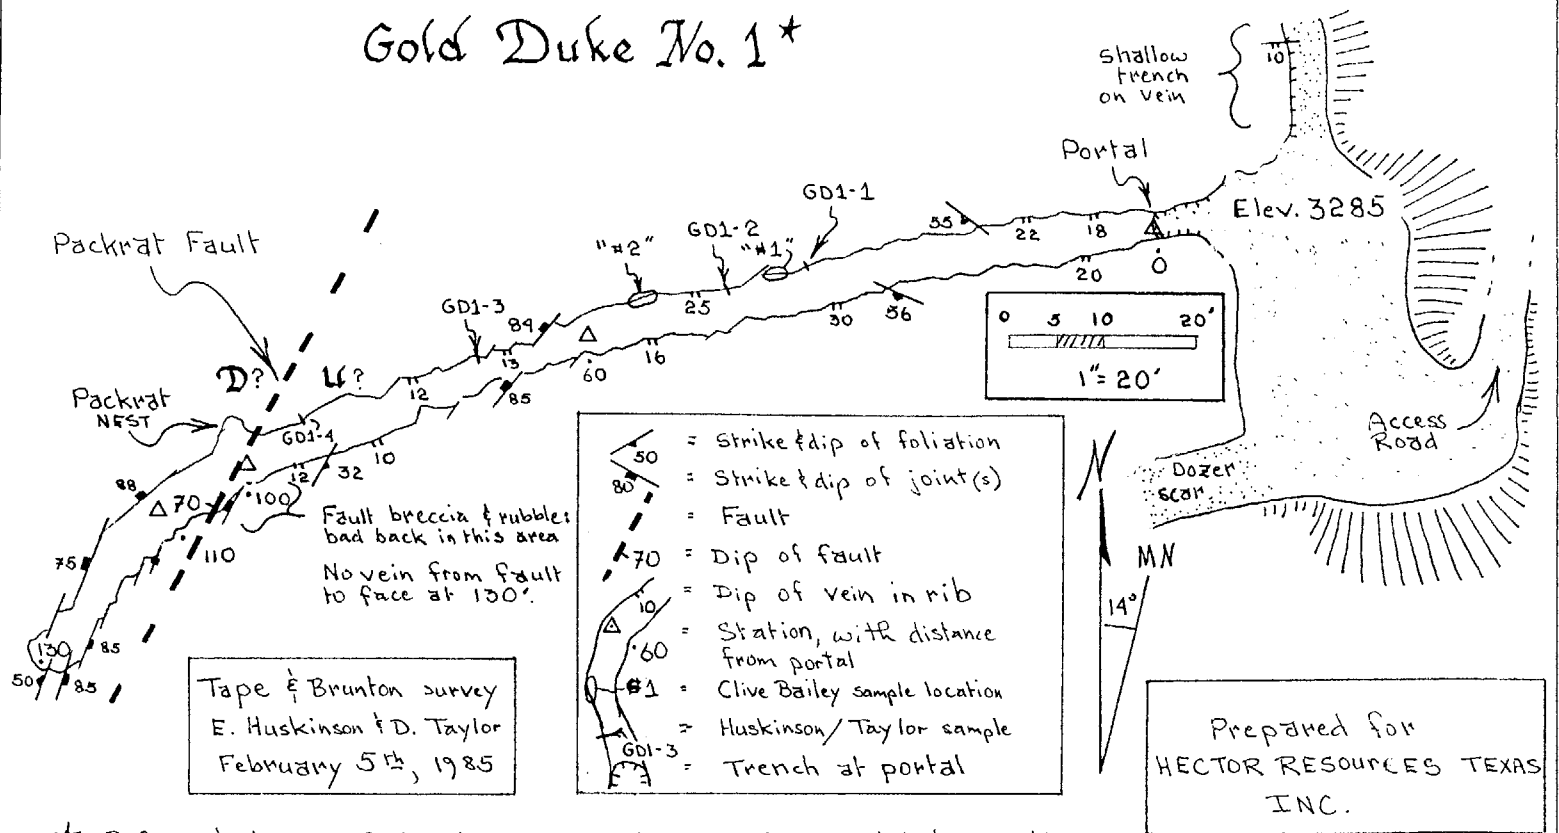 Gold Duke No. 1*
shallow
trench
on vein
10
Portal
Elev. 3285
GD1-1
55
22
18
0
20
GD1-2
"#1"
"#2"
25
30
56
Packrat Fault
GD1-3
84
13
60
16
85
12
D? U?
Packrat
NEST
GD1-4
12
32
10
88
70
100
110
75
130
85
50
85
Fault breccia & rubble:
bad back in this area
No vein from fault
to face at 130'.
0 5 10 20'
1" = 20'
Access
Road
Dozer
scar
N
MN
14°
50 = Strike & dip of foliation
80 = Strike & dip of joint(s)
= Fault
70 = Dip of fault
10 = Dip of vein in rib
60 = Station, with distance
from portal
#1 = Clive Bailey sample location
GD1-3 = Huskinson/Taylor sample
= Trench at portal
Tape & Brunton survey
E. Huskinson & D. Taylor
February 5th, 1985
Prepared for
HECTOR RESOURCES TEXAS
INC.